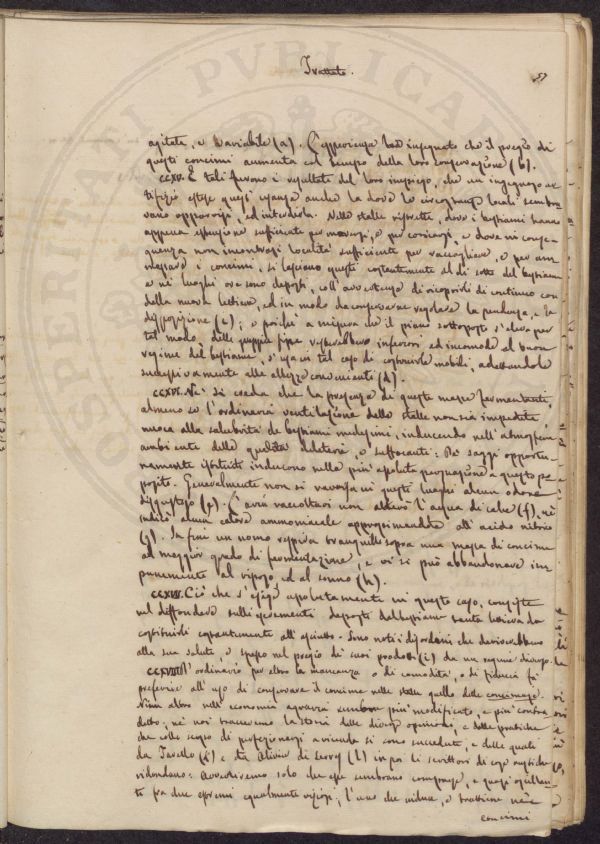 Trattato.
agitate, e variabile (a). L'esperienza ha insegnato che il pregio di
questi concimi aumenta col tempo della loro conservazione (b).
CCXV. E tali furono i resultati del loro impiego, che un ingegnoso ar
tifizio estese quest' usanza anche là dove le circostanze locali sembra
vano opporvisi, ed interdirla. Nelle stalle ristrette, dove i bestiami hanno
appena estensione sufficiente per muoversi, o per coricarsi, e dove in conse
guenza non incontrasi località sufficiente per raccogliere, o per am
massare i concimi, si lasciano questi costantemente al di sotto del bestiame
e nei luoghi ove sono deposti, coll' avvertenza di ricoprirli di continuo con
della nuova lettiera, ed in modo da conservarne regolare la pendenza, e la
disposizione (c); e poichè a misura che il piano sottoposto s'eleva per
tal modo, delle greppie fisse resterebbero inferiori ed incomode al buon
regime del bestiame, s'usa in tal caso di costruirle mobili, adattandole
successivamente alle altezze convenienti (d).
CCXVI. Nè si creda che la presenza di queste masse fermentanti,
almeno se l'ordinaria ventilazione delle stalle non sia impedita,
nuoca alla salubrità de bestiami medesimi, inducendo nell' atmosfera
ambiente delle qualità deleterie, o suffocanti: De' saggi opportu-
namente istituiti inducono nella più assoluta persuasione a questo pro
posito. Generalmente non si ravvisa in questi luoghi alcun odore
disgustoso (e). L'aria raccoltavi non altera l'acqua di calce (f), nè
indica alcun odore ammoniacale approssimandola all' acido nitrico
(g). In fine un uomo respira tranquillo sopra una massa di concime
al maggior grado di fermentazione, e vi si può abbandonare im
punemente al riposo, ed al sonno (h).
CCXVII. Ciò che s'esige assolutamente in questo caso, consiste
nel diffondere sulli escrementi deposti dal bestiame tanta lettiera da
costituirli costantemente all' asciutto. Sono noti i disordini che deriverebbero
alla sua salute, e spesso nel pregio de' suoi prodotti (i) da un regime diverso.
CCXVIII. D'ordinario per altro la mancanza o di comodità, o di fiducia fa
preferire all' uso di conservare il concime nelle stalle quello delle concimaje.
Niun altro nell' economia agraria sembra più modificato, e più contra
detto; nè noi tracceremo la storia delle diverse opinioni, e delle pratiche
che collo scopo di perfezionarsi a vicenda si sono succedute, e delle quali
da Tarello (k) e da Olivier de Serres (l) in poi le scritture di cose agrarie
ridondano: Avvertiremo solo che esse sembrano comprese, e quasi oscillan-
ti fra due estremi egualmente viziosi; l'uno che riduce, e trattiene ne'
concimi